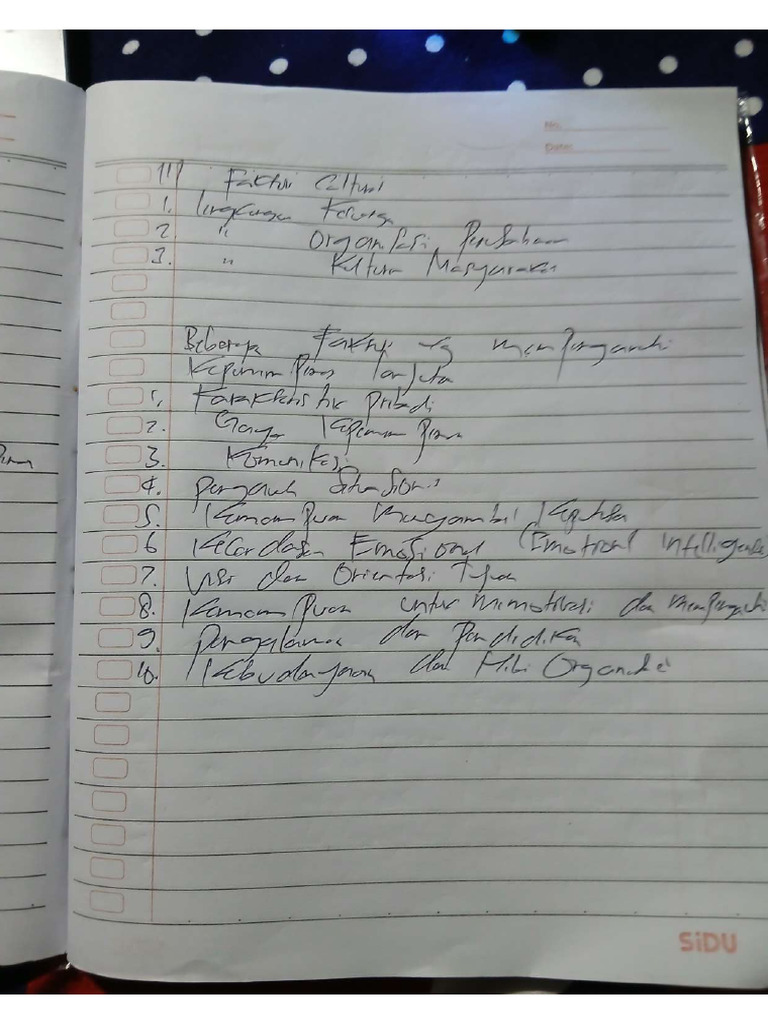 No.
Date:
11) Faktor Cultural
1. lingkungan Keluarga
2. " Organisasi Perusahaan
3. " Kultura Masyarakat
Beberapa Faktor yg mempengaruhi
Kepemimpinan
1. Karakteristik pribadi
2. Gaya Kepemimpinan
3. Komunikasi
4. pengaruh situasional
5. Kemampuan Mengambil Keputusan
6 Kecerdasan Emosional (Emotional Intelligence
7. Visi dan Orientasi Tujuan
8. Kemampuan untuk memotivasi dan mempengaruhi
9. pengalaman dan Pendidikan
10. Kebudayaan dan Organisasi
SiDU